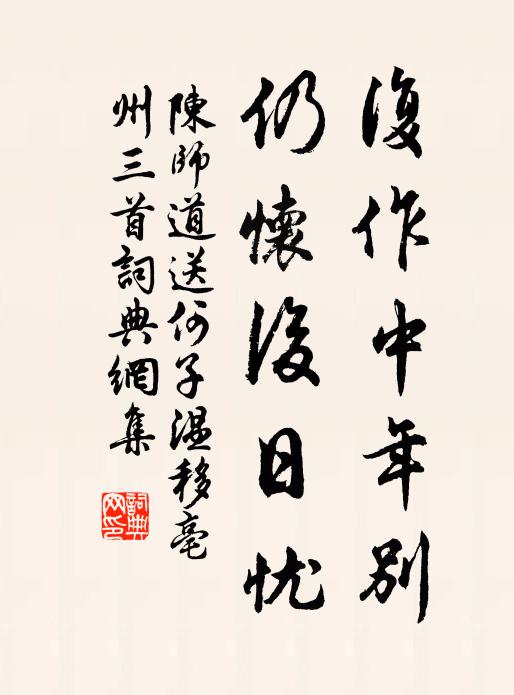 復作中年別
仍懷後日忧
陳師道送何子温移亳
州三首詞典網集
詞典
网印